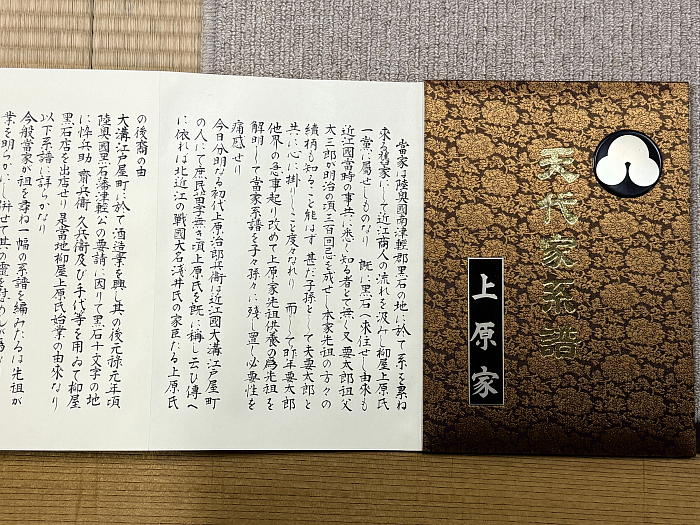 上原家
系譜
當家は陸奥國南津軽郡黒石の地に於て系を累ね
来る舊家にして近江商人の流れを汲みし柳屋上原氏
一黨に屬せしものなり 既に黒石へ来住せし由来も
近江國當時の事共も悉く知る者とて無く又要太郎祖父
太三郎が明治の頃三百回忌を成せし本家先祖の方々の
續柄も知ること能はず 甚だ子孫として夫要太郎と
共に心に掛かしこと度々なれり 而して昨年要太郎
他界の急事起り改めて上原家先祖供養の為先祖を
解明して當家系譜を子々孫々に残し置く必要性を
痛感せり
今日分明なる初代上原治郎兵衛は近江國大溝江戸屋町
の人にて庶民苗字無き頃上原氏を既に稱し云ひ傳へ
に依れば北近江の戰國大名淺井氏の家臣たる上原氏
の後裔の由
大溝江戸屋町に於て酒造業を興し其の後元孫元太頃
陸奥國黒石藩津輕公の要請に因りて黒石十文字の地
に伜兵助 齊兵衛 久兵衛及び手代等を用ゐて柳屋
黒石店を出店せり 是當地柳屋上原氏始業の由来なり
以下系譜に詳らかなり
今般當家が祖を尋ね一幅の系譜を編みたるは先祖が
業を明らかにし併せて其の靈を